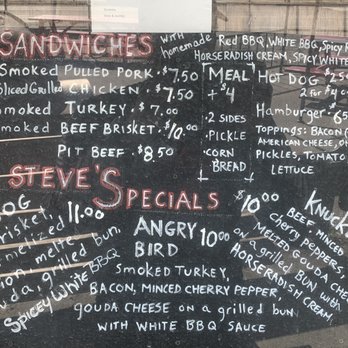 SANDWICHES
WITH homemade
Red BBQ, WHITE BBQ, Spicy
HORSERADISH CREAM, SPICY WHITE
Smoked PULLED PORK . $7.50
Sliced Grilled CHICKEN . $7.50
Smoked TURKEY . $7.00
Smoked BEEF BRISKET . $10.00
PIT BEEF . $8.50
MEAL
+ $4
2 SIDES
PICKLE
CORN
BREAD
HOT DOG
2 for
Hamburger
TOPPINGS: BACON
AMERICAN CHEESE,
PICKLES, TOMATO
LETTUCE
STEVE'S SPECIALS
11.00
melt
grilled bun,
SPICEY WHITE BBQ
ANGRY BIRD 10.00
SMOKED TURKEY,
BACON, MINCED CHERRY PEPPER,
GOUDA CHEESE on a grilled bun
WITH WHITE BBQ SAUCE
$10.00
BEEF, MINCED
cherry peppers,
MELTED GOUDA
on a grilled bun with
HORSERADISH CREAM